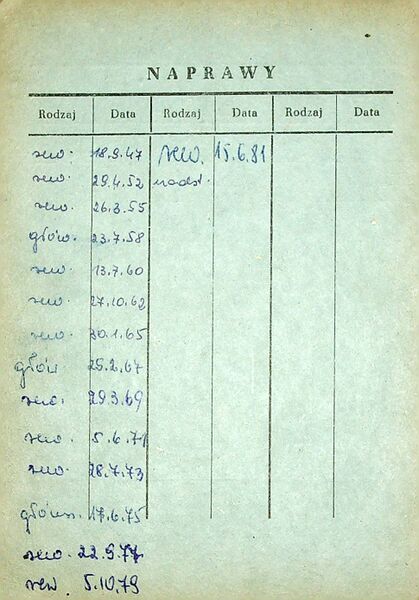 NAPRAWY
Rodzaj Data Rodzaj Data Rodzaj Data
rew. 18.9.47 rew. 15.6.81
rew. 29.4.52
rew. 26.3.55
głów. 23.7.58
rew. 13.7.60
rew. 27.10.62
rew. 30.1.65
głów 25.2.67
rew. 29.3.69
rew. 5.6.71
rew. 28.7.73
główn. 17.6.75
rew. 22.9.77
rew. 5.10.79